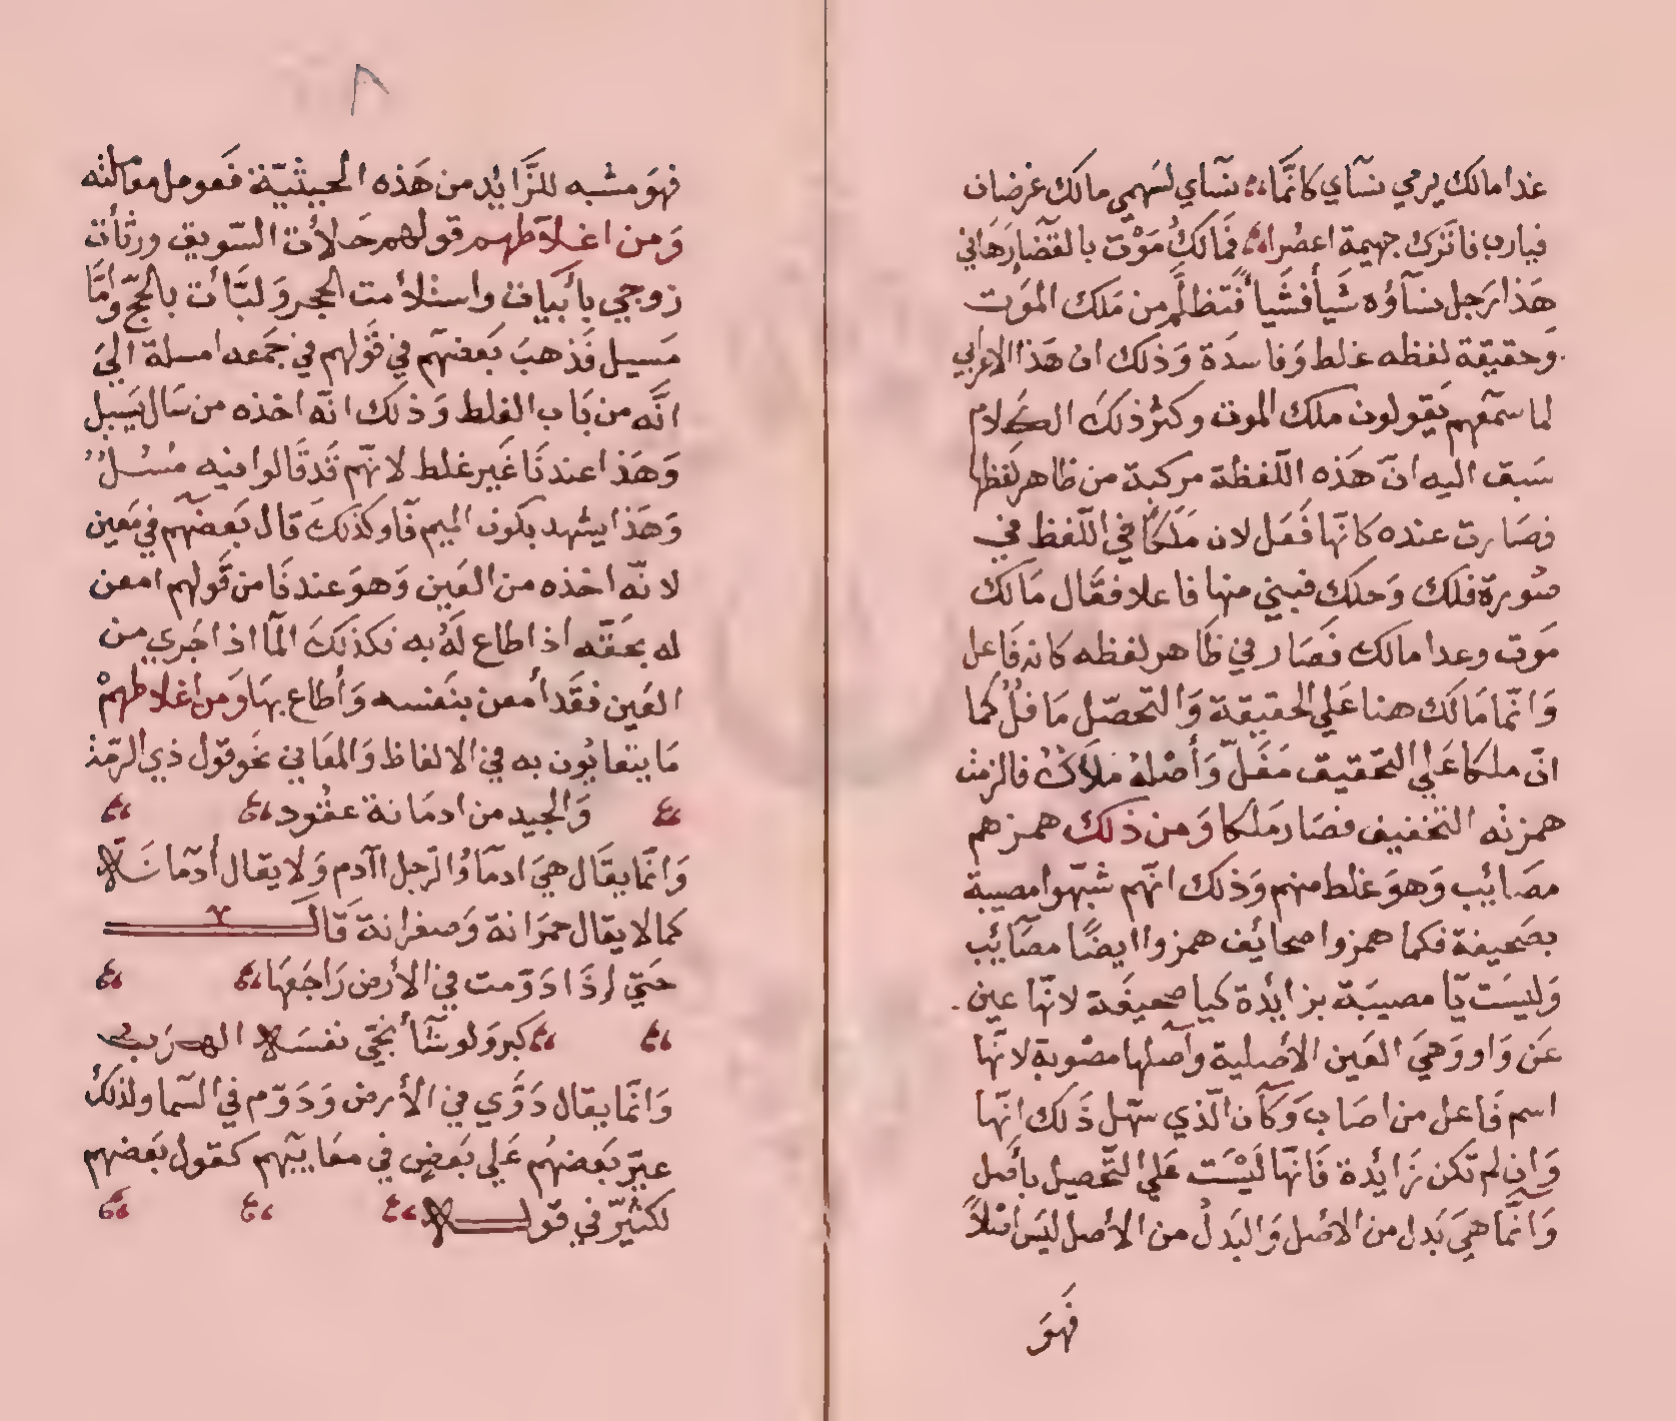 غدا مالك يرمي نسآي كانَّما ؞ نسآي لسَهمي مالك غرضان
فيارب فاترك جهيمة اعصُرا ؞ فَمالكُ مَوْت بالقضآِ رَهاني
هَذا رَجل نسآؤه شَيأ فشَيأ فتَظلَّم من مَلك الموَت
وَحقيقة لفظه غلط وَفاسدَة وَذلك ان هَذا الاعرابي
لما سمَعهم يَقولون ملك الموت وكثر ذلكَ الكَلام
سَبق اليه انّ هَذه اللّفظة مركبة من ظاهر لَفظها
فصَارت عنده كانّها فَعَل لان مَلَكًا في اللّفظ في
صُورَة فلك وَحلَك فبني منها فاعلا فقَال مَالك
مَوت وعدا مالك فَصَار في ظَاهر لفظه كانه فَاعل
وَانّما مَالَك هنا عَلي الحقيقة وَالتحصّل مَافُلٌ كما
انّ ملكا عَلي التحقيق مَفَلّ وَأصْلهُ مَلأكٌ فالزمت
همزته التخفيف فصَار مَلكا وَمن ذلك همزهم
مصَائِب وَهوَ غلط منهم وَذلك انهّم شبّهوا مصيبة
بصَحيفة فكما همزوا صحائِف همزوا ايضًا مصَائِب
وَليسَت يّا مصيبَة بزايِدة كيا صحيفَة لانهّا عين
عَن وَاو وَهيَ العَين الأصْلية وآصلها مصْوبة لانهّا
اسم فَاعل من اصَاب وَكَآن الّذي سهّل ذَلك انهّا
وَان لم تكن زَايِدة فَانهّا لَيْسَت عَلي التّحصيل بأصْل
وَانَّما هيَ بَدل من الاصْل وَالبَدلُ من الأصل ليَس اصْلاً
فَهوَ
٨
فهوَ مشبه للزَّايِد من هَذه الحيثيّة فعَومل معاملته
وَمن اغلاَطهم قولهم حَلأت السّويق ورثأت
زوجي بأبيات واستلأمت الحجر وَلبّأت بالحجّ وأمَّا
مَسيل فَذهبَ بَعضهّم في قَولهم في جَمعه امسلة اليَ
انَّه من بَاب الغلط وَذلك انّه اخذه من سَال يَسيل
وَهَذا عندنَا غَير غلط لانهّم قَد قَالوا فيه مُسُلٌ
وَهَذا يشهد بكون الميم فَآ وكذلكَ قال بَعضهّم في مَعين
لانّه اخذه من العَين وَهوَ عندنَا من قَولهم امعن
له بحَقّه اذا اطاع لَهُ به فكذلكَ المآ اذا جَري من
العَين فقَد أمعن بنَفسه وَأطاع بهَا وَمن اغلاطهمْ
مَا يتعايَون به في الالفاظ وَالمعَاني نحَو قول ذي الرّمة
؞ وَالجيد من ادمَانة عتُود ؞ ؞
وَانمَّا يقَال هيَ ادمَآ وُالرّجل اآدم وَلا يقال أدمَانَة
كمالا يقال حمرَانة وَصفرانة قَالَ
حتيّ إذَا دَوّمت في الأرض رَاجَعَهَا ؞ ؞
؞ ؞ كبر وَلو شآ أ نجّي نفسَه الهرَب
وَانّما يقال دَوَّي في الأرض وَدَوّم في السّما ولذلك
عيّر بَعضهُم عَلي بَعضٍ في معَاييهم كقول بَعضهم
لكثيّر في قوله ؞ ؞ ؞